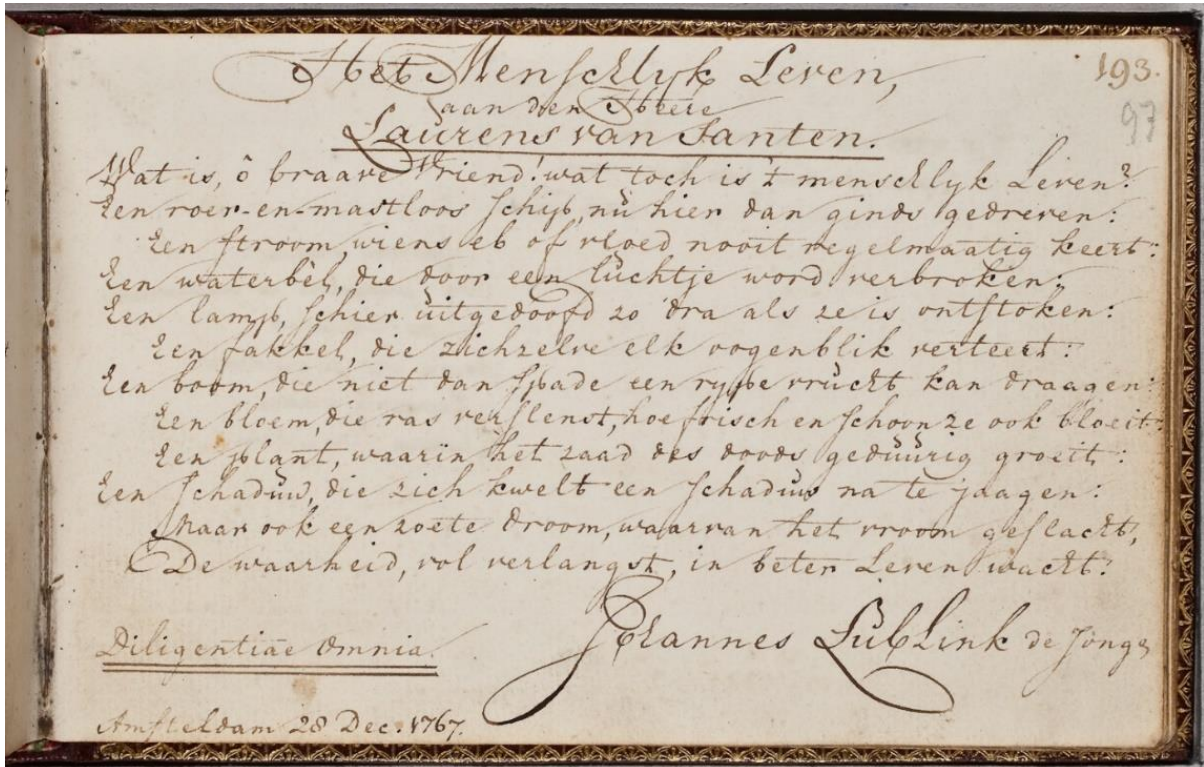 Het Menschlyk Leven,
193.
aan den Heere
97
Laurens van Santen.
Wat is, ô braave Vriend! wat toch is 't menschlyk Leven?
Een roer-en-mastloos schip, nù hier dan ginds gedreven:
Een stroom, wiens eb of vloed nooit regelmaatig keert:
Een waterbel, die door een lùchtje word verbroken:
Een lamp, schier ùitgedoofd zo dra als ze is ontstoken:
Een fakkel, die zichzelve elk oogenblik verteert:
Een boom, die niet dan spade een rype vrùcht kan draagen:
Een bloem, die ras verslenst, hoe frisch en schoon ze ook bloeit:
Een plant, waarin het zaad des doods gedùùrig groeit:
Een schadùw, die zich kwelt een schadùw na te jaagen:
Maar ook een zoete droom, waarvan het vroom geslacht,
De waarheid, vol verlangst, in beter Leven wacht.
Johannes Lublink de Jonge
Diligentiae Omnia.
Amsteldam 28 Dec. 1767.